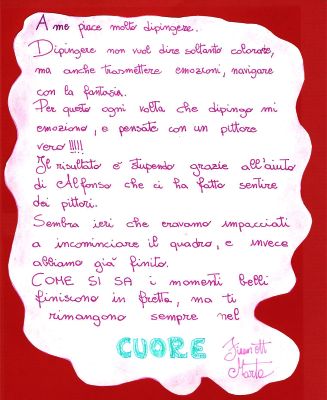 A me piace molto dipingere.
Dipingere non vuol dire soltanto colorare,
ma anche trasmettere emozioni, navigare
con la fantasia.
Per questo ogni volta che dipingo mi
emoziono, e pensate con un pittore
vero !!!!!
Il risultato é stupendo grazie all'aiuto
di Alfonso che ci ha fatto sentire
dei pittori.
Sembra ieri che eravamo impacciati
a incominciare il quadro, e invece
abbiamo già finito.
COME SI SA i momenti belli
finiscono in fretta, ma ti
rimangono sempre nel
CUORE
Marta